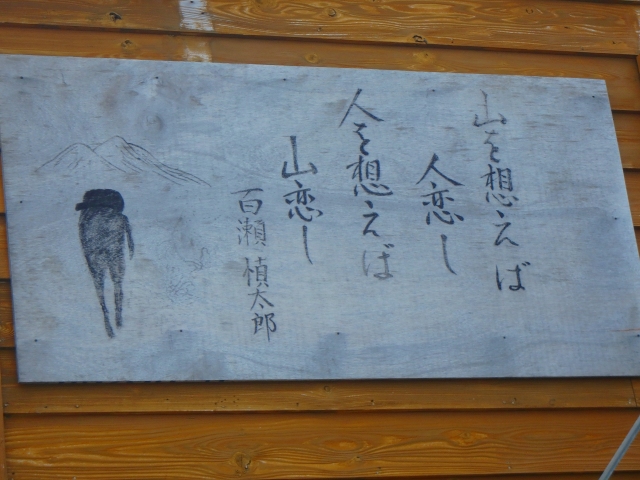 山を想えば
人恋し
人を想えば
山恋し
百瀬慎太郎